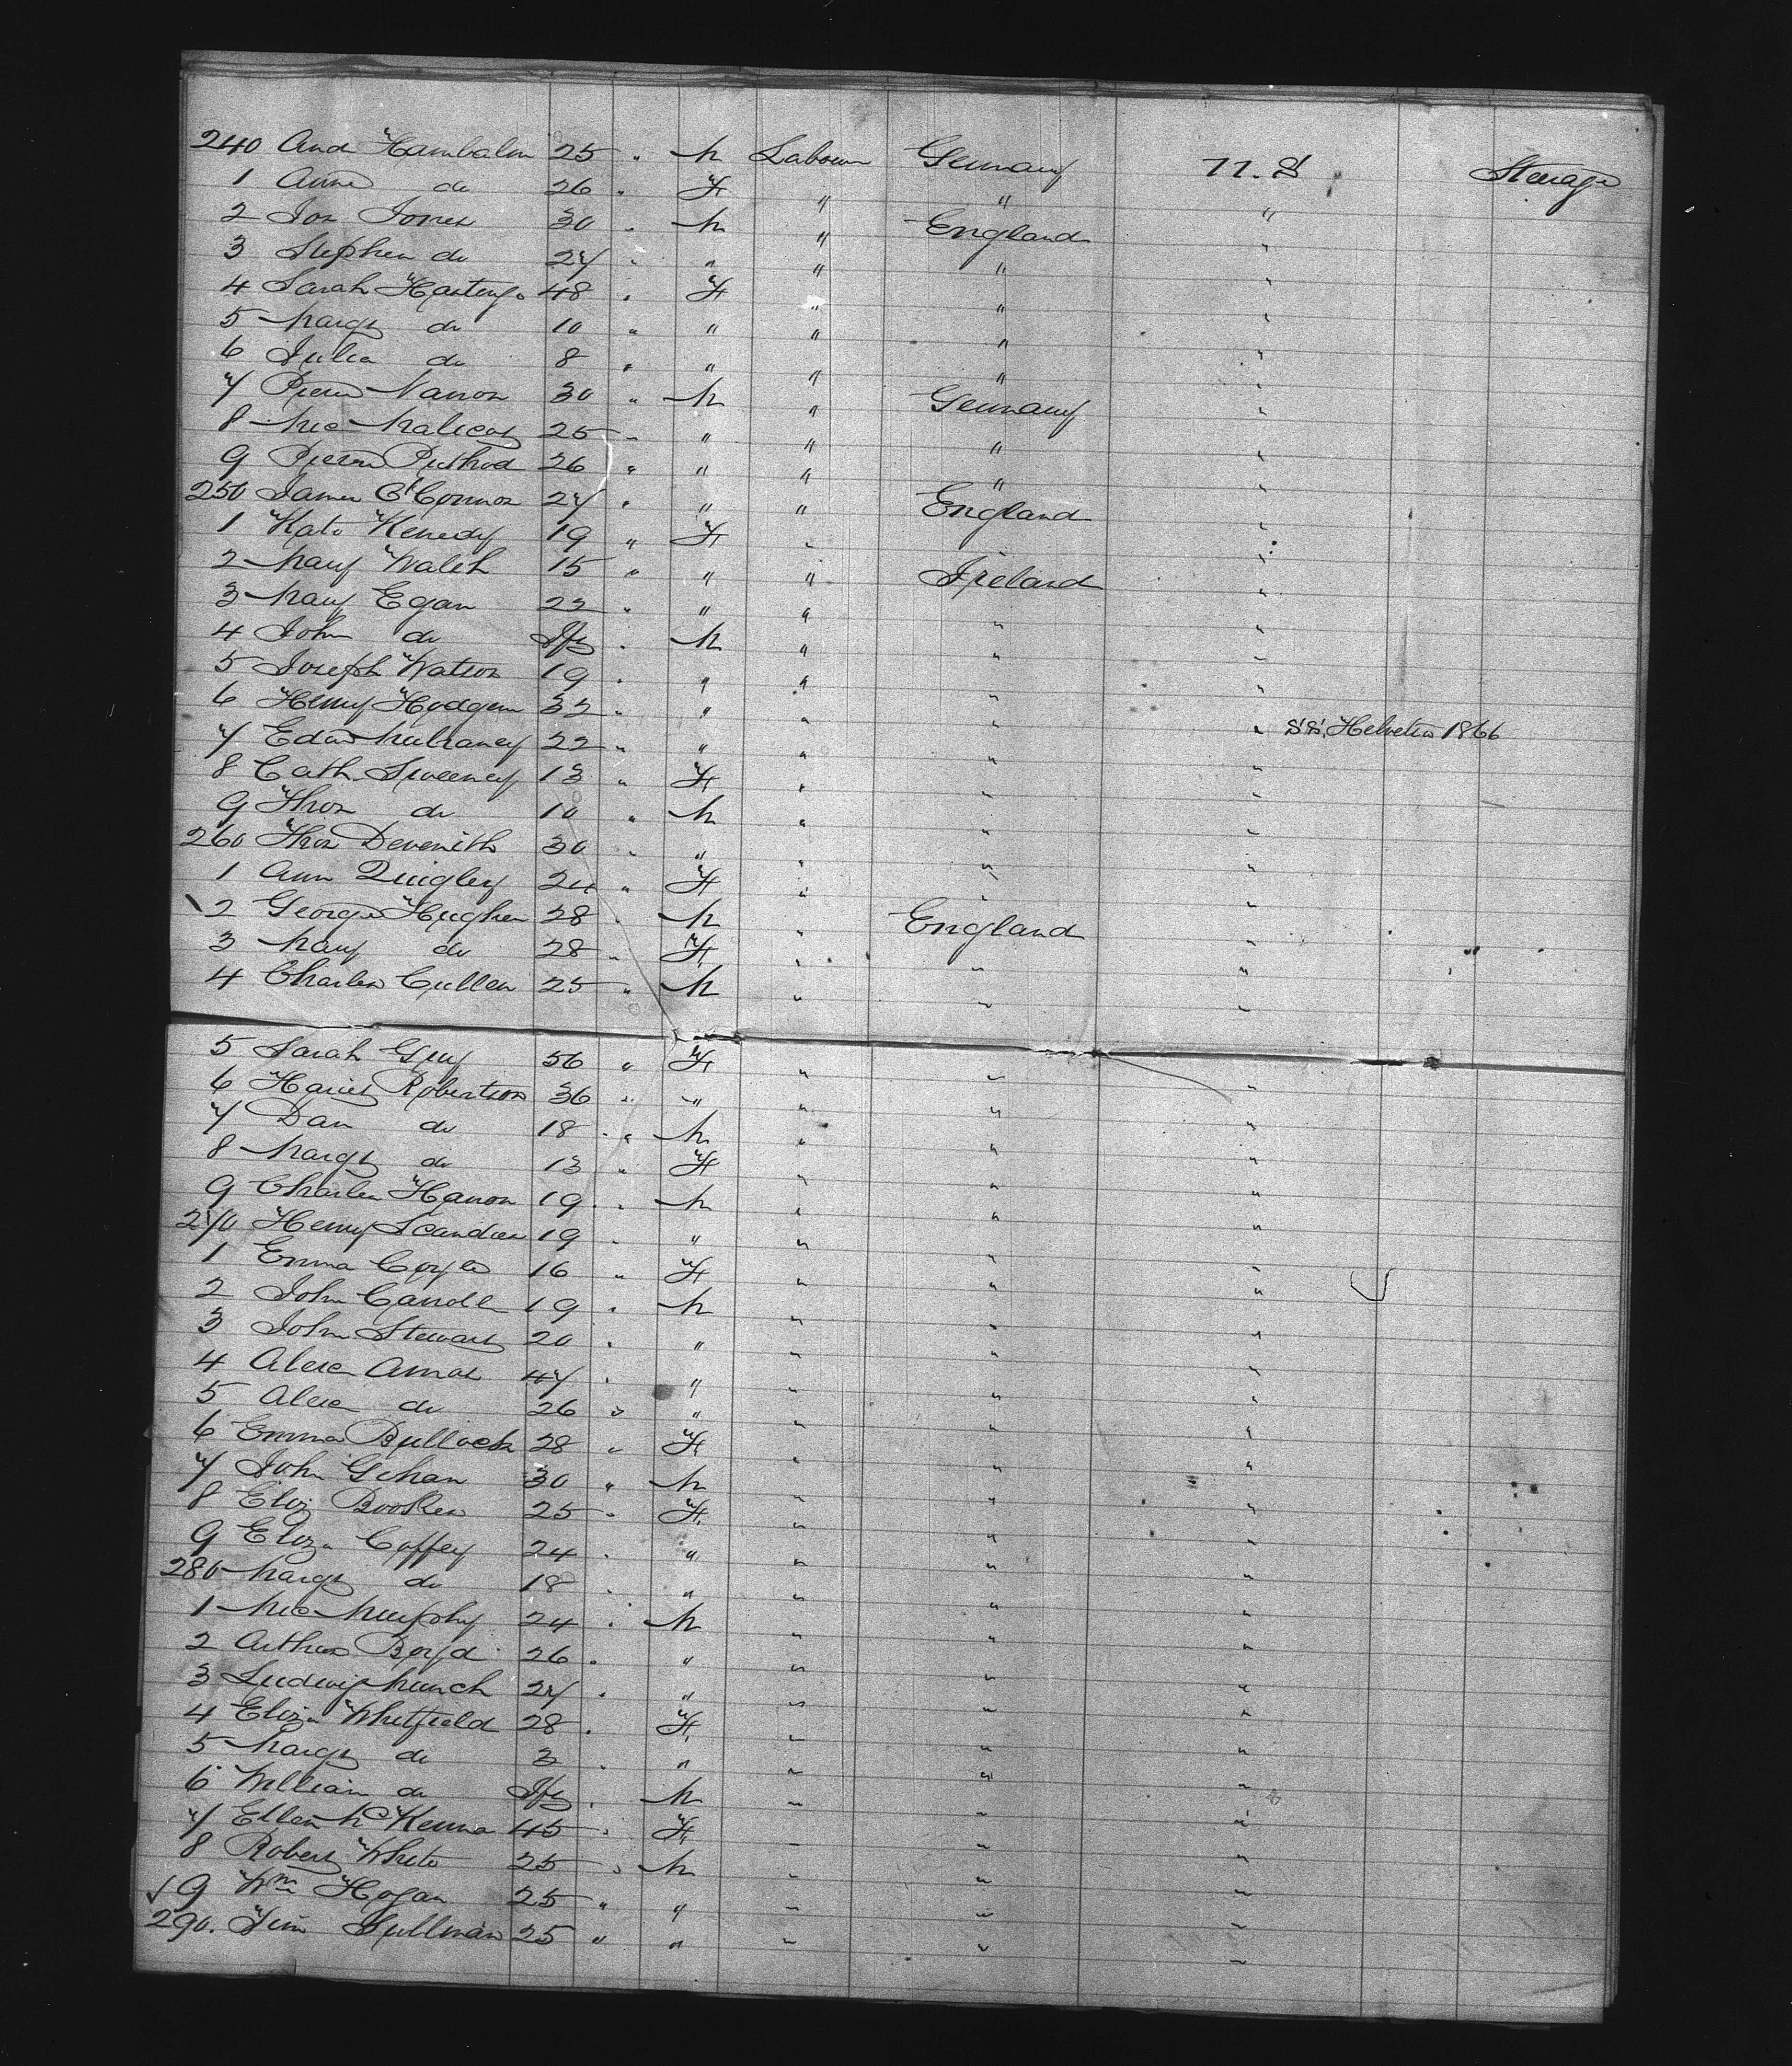 240 And Hambalm 25 " M Labour Germany U.S. Steerage
1 Anne do 26 " F " " "
2 Jos Jones 30 " M " England "
3 Stephen do 27 " " " " "
4 Sarah Hastings 48 " F " " "
5 Margt do 10 " " " " "
6 Julia do 8 " " " " "
7 Pierre Narron 30 " M " Germany "
8 Mic 25 " " " " "
9 Pierre Puthod 26 " " " " "
250 James O'Connor 27 " " " England "
1 Kate Kenedy 19 " F " "
2 Mary Walsh 15 " " " Ireland "
3 Mary Egan 22 " " " " "
4 John do Inf " M " " "
5 Joseph Watson 19 " " " " "
6 Henry Hodgem 32 " " " " " S.S. Helvetia 1866
7 Edwd Mulraney 22 " " " " "
8 Cath Sweeney 13 " F " " "
9 Thos do 10 " M " " "
260 Thos Devenith 30 " " " " "
1 Ann Quigley 24 " F " " "
2 George Hughes 28 " M " England "
3 Mary do 28 " F " " "
4 Charles Cullen 25 " M " " "
5 Sarah Guy 56 " F " " "
6 Hariet Robertson 36 " " " " "
7 Dan do 18 " M " " "
8 Margt do 13 " F " " "
9 Charles Hanon 19 " M " " "
270 Henry Scandien 19 " " " " "
1 Emma Coyle 16 " F " " "
2 John Candle 19 " M " " "
3 John Stewart 20 " " " " "
4 Alexr Amos 47 " " " " "
5 Alexr do 26 " " " " "
6 Emma Bullock 28 " F " " "
7 John Gehan 30 " M " " "
8 Eliz Brooker 25 " F " " "
9 Eliza Coffey 24 " " " " "
280 Margt do 18 " " " " "
1 Mic Murphy 24 " M " " "
2 Arthur Boyd 26 " " " " "
3 Ludwig Munch 27 " " " " "
4 Eliza Whitfield 28 " F " " "
5 Margt do 3 " " " " "
6 William do Inf " M " " "
7 Ellen McKenna 45 " F " " "
8 Robert White 25 " M " " "
9 Wm Hogan 25 " " " " "
290. Tim Sullivan 25 " " " " "